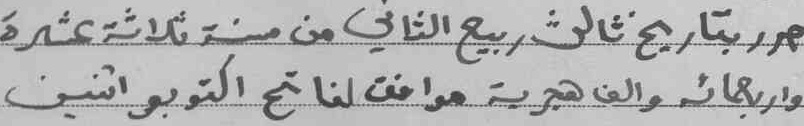 حرر بتاريخ ثالث ربيع الثاني من سنة ثلاثة عشرة
واربعمائه والف هجرية موافق لفاتح اكتوبر اثنين